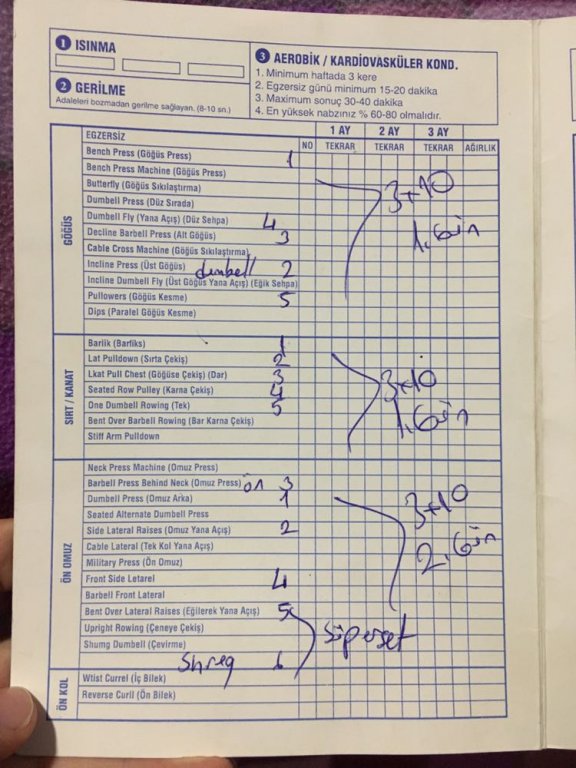 1 ISINMA
2 GERİLME
Adaleleri bozmadan gerilme sağlayan. (8-10 sn.)
3 AEROBİK / KARDİOVASKÜLER KOND.
1. Minimum haftada 3 kere
2. Egzersiz günü minimum 15-20 dakika
3. Maximum sonuç 30-40 dakika
4. En yüksek nabzınız % 60-80 olmalıdır.
1 AY 2 AY 3 AY
EGZERSİZ NO TEKRAR TEKRAR TEKRAR AĞIRLIK
GÖĞÜS
Bench Press (Göğüs Press) 1
Bench Press Machine (Göğüs Press)
Butterfly (Göğüs Sıkılaştırma)
Dumbell Press (Düz Sırada)
Dumbell Fly (Yana Açış) (Düz Sehpa) 4
Decline Barbell Press (Alt Göğüs) 3
Cable Cross Machine (Göğüs Sıkılaştırma)
Incline Press (Üst Göğüs) dumbell 2
Incline Dumbell Fly (Üst Göğüs Yana Açış) (Eğik Sehpa)
Pullowers (Göğüs Kesme) 5
Dips (Paralel Göğüs Kesme)
3+10
1.Gün
SIRT / KANAT
Barlik (Barfiks) 1
Lat Pulldown (Sırta Çekiş) 2
Lkat Pull Chest (Göğüse Çekiş) (Dar) 3
Seated Row Pulley (Karna Çekiş) 4
One Dumbell Rowing (Tek) 5
Bent Over Barbell Rowing (Bar Karna Çekiş)
Stiff Arm Pulldown
3+10
1.Gün
ÖN OMUZ
Neck Press Machine (Omuz Press)
Barbell Press Behind Neck (Omuz Press) ön 3
Dumbell Press (Omuz Arka) 1
Seated Alternate Dumbell Press
Side Lateral Raises (Omuz Yana Açış) 2
Cable Lateral (Tek Kol Yana Açış)
Military Press (Ön Omuz)
Front Side Letarel 4
Barbell Front Lateral
Bent Over Lateral Raises (Eğilerek Yana Açış) 5
Upright Rowing (Çeneye Çekiş)
Shumg Dumbell (Çevirme)
Shreg 6
3+10
2.Gün
Süperset
ÖN KOL
Wtist Currel (İç Bilek)
Reverse Curll (Ön Bilek)